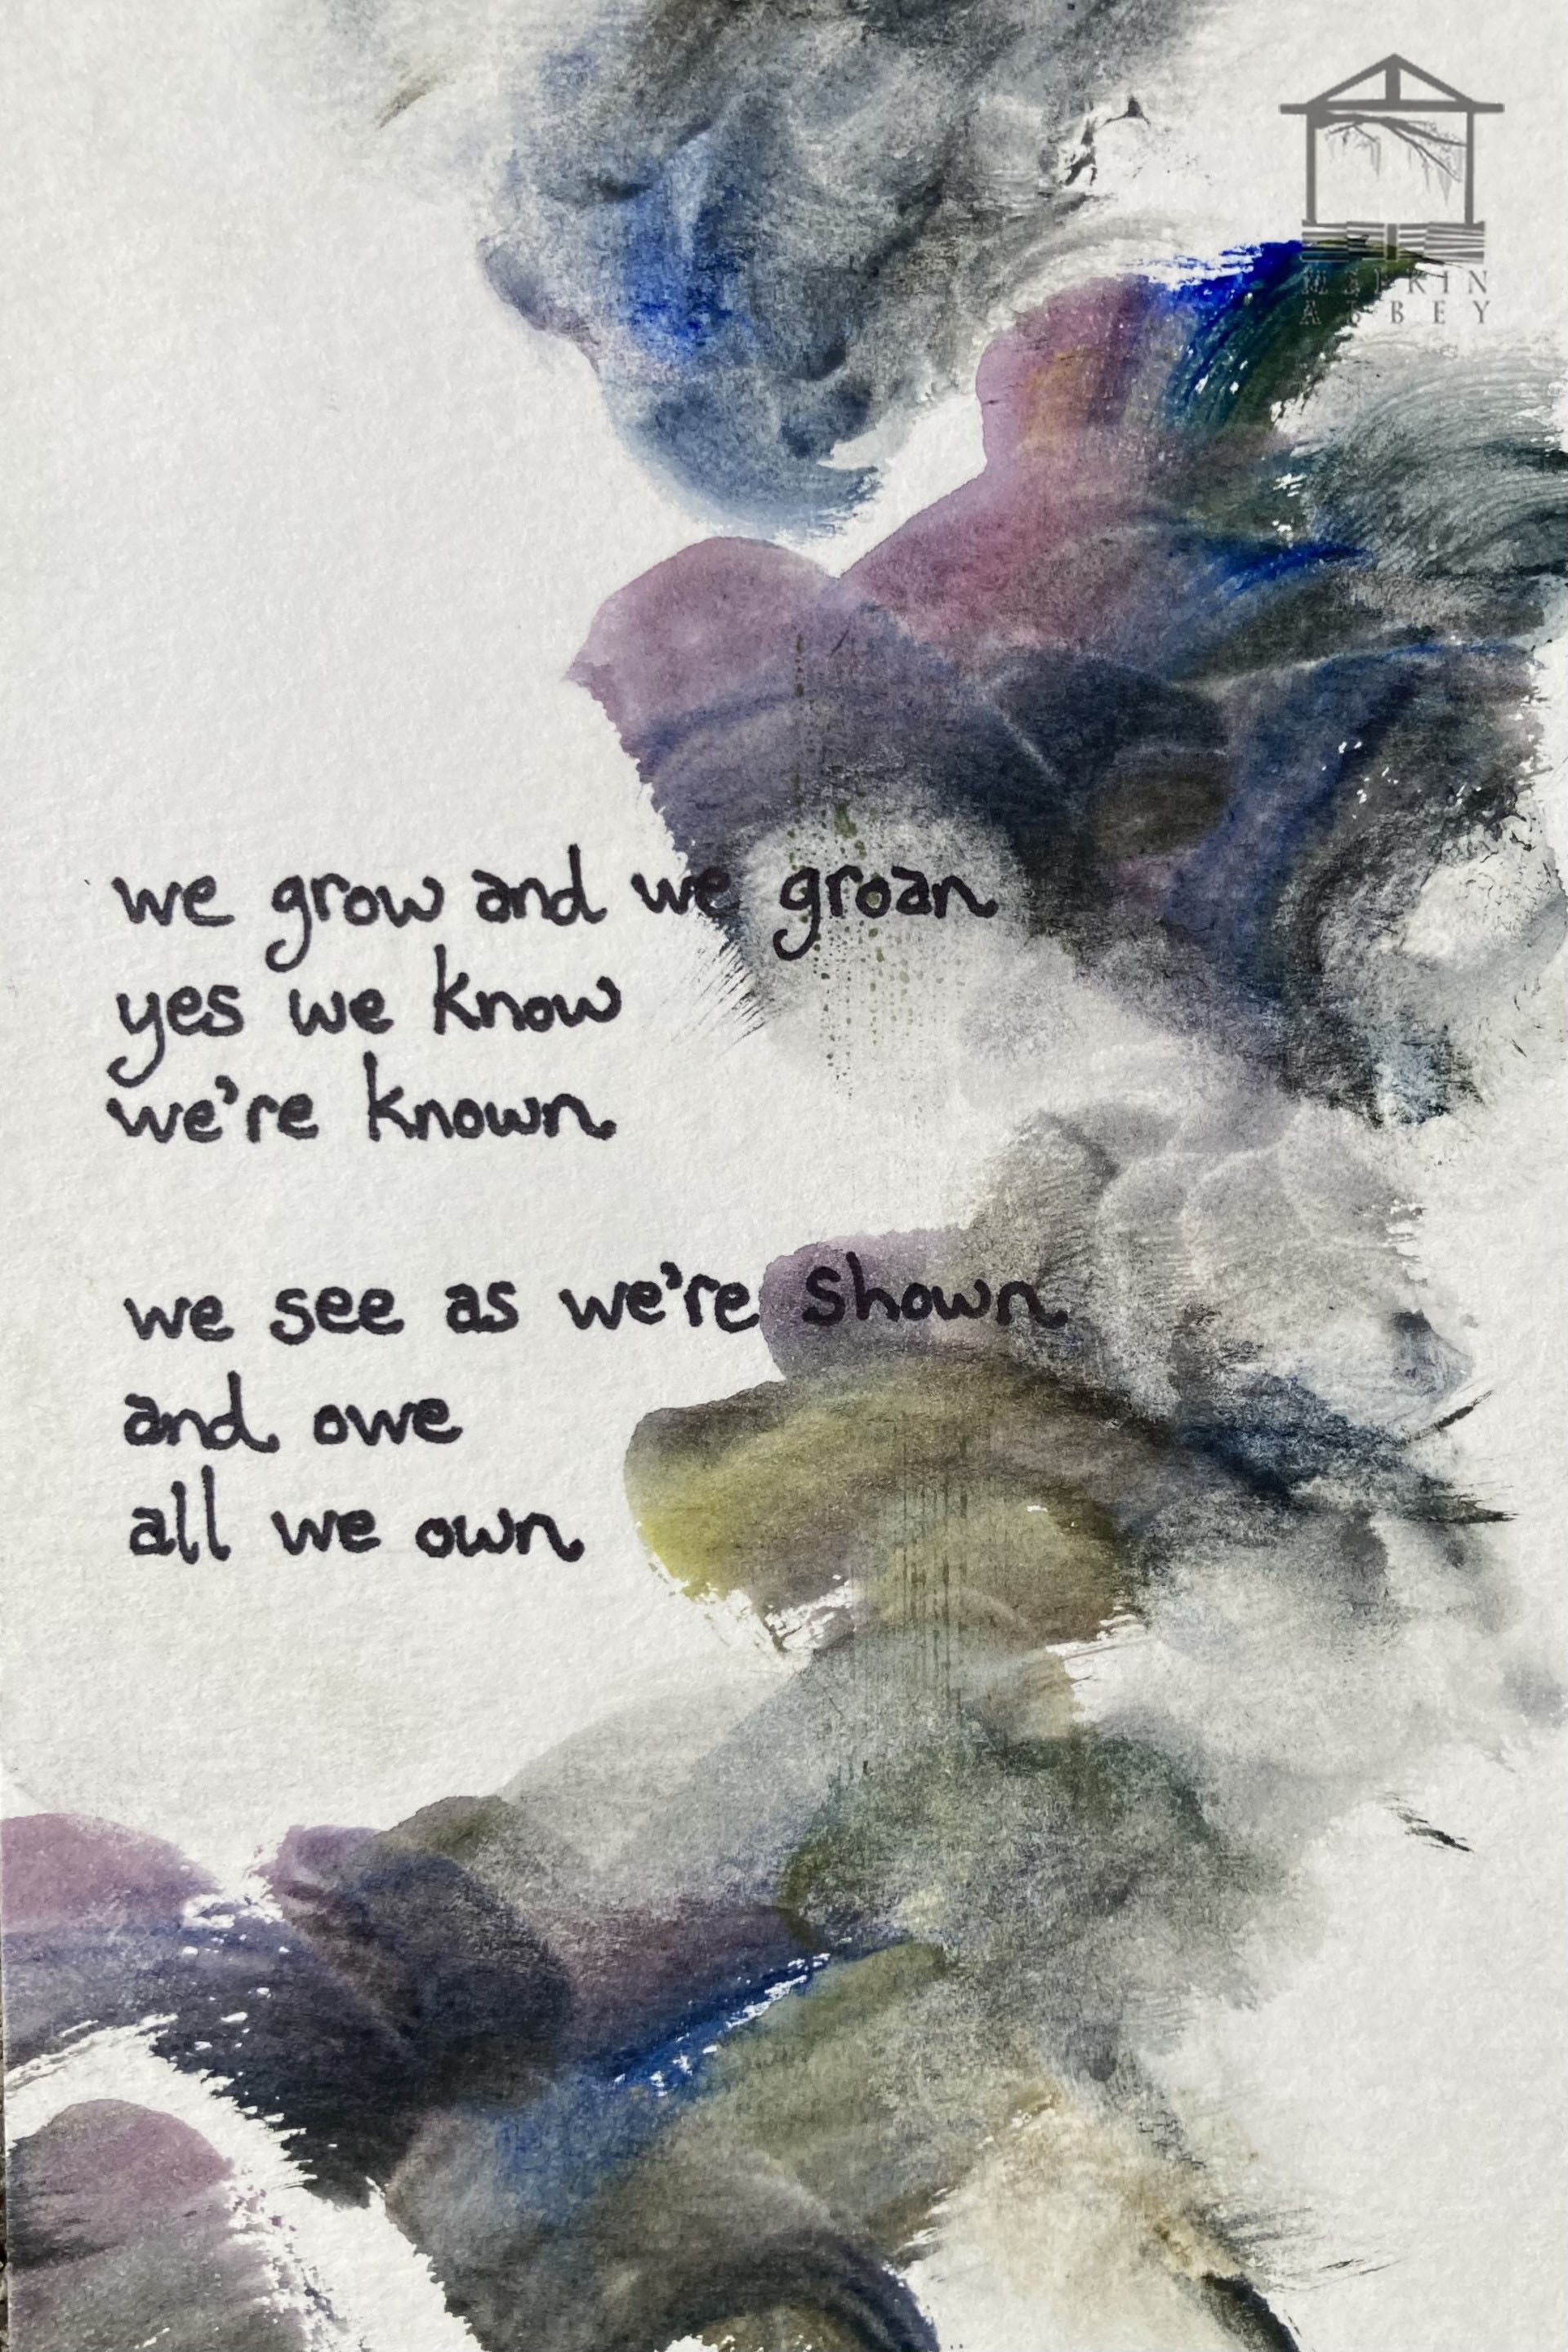 MEPKIN
ABBEY
we grow and we groan
yes we know
we're known
we see as we're shown
and owe
all we own